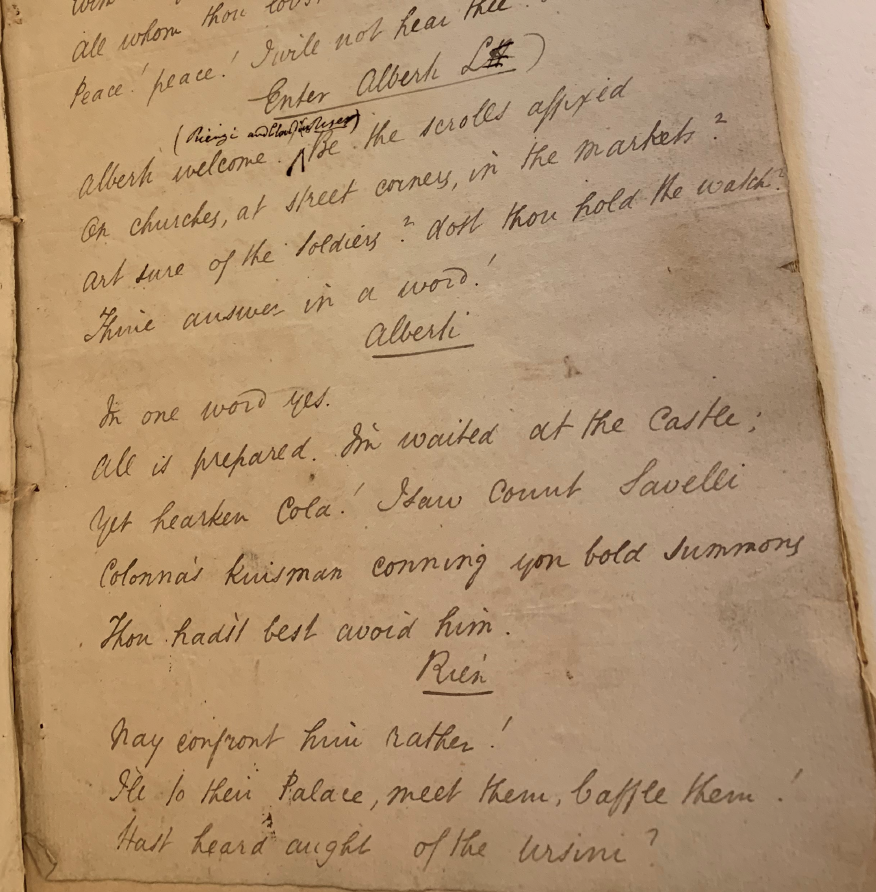 all whom thou
Peace! peace! I wile not hear thee
Enter Alberti L H)
(Rienzi and Claudia Rises)
Alberti welcome. Be the scrolls affixed
On churches, at street corners, in the markets?
Art sure of the Soldiers? dost thou hold the watch?
Thine answer in a word!
Alberti
In one word yes.
All is prepared. I'm waited at the Castle;
Yet hearken Cola! I saw Count Savelli
Colonna's kinsman conning yon bold summons
Thou hadst best avoid him.
Rien
Nay confront him rather!
Ile to their Palace, meet them, baffle them!
Hast heard aught of the Ursini?